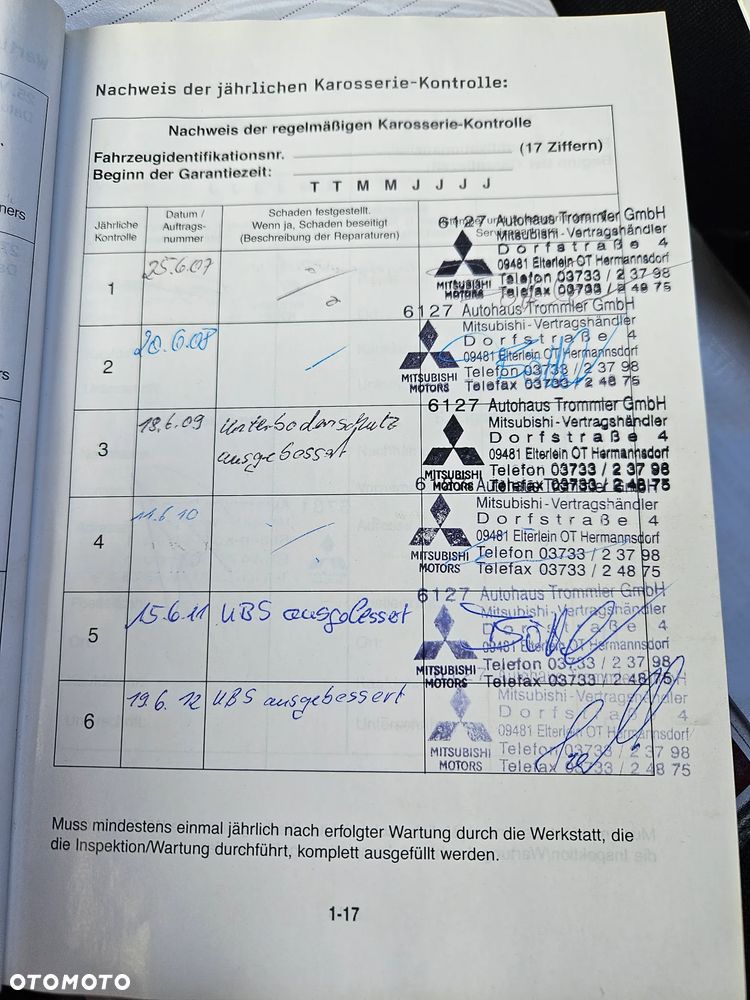 Nachweis der jährlichen Karosserie-Kontrolle:
Nachweis der regelmäßigen Karosserie-Kontrolle
Fahrzeugidentifikationsnr. (17 Ziffern)
Beginn der Garantiezeit:
T T M M J J J J
Jährliche Kontrolle
Datum / Auftrags-nummer
Schaden festgestellt.
Wenn ja, Schaden beseitigt
(Beschreibung der Reparaturen)
1
25.6.07
6127 Autohaus Trommler GmbH
Mitsubishi-Vertragshändler
Dorfstraße 4
09481 Elterlein OT Hermannsdorf
MITSUBISHI MOTORS
Telefon 03733 / 2 37 98
Telefax 03733 / 2 48 75
2
20.6.08
6127 Autohaus Trommler GmbH
Mitsubishi-Vertragshändler
Dorfstraße 4
09481 Elterlein OT Hermannsdorf
MITSUBISHI MOTORS
Telefon 03733 / 2 37 98
Telefax 03733 / 2 48 75
3
18.6.09
Unterbodenschutz
ausgebessert
6127 Autohaus Trommler GmbH
Mitsubishi-Vertragshändler
Dorfstraße 4
09481 Elterlein OT Hermannsdorf
MITSUBISHI MOTORS
Telefon 03733 / 2 37 98
Telefax 03733 / 2 48 75
4
11.6.10
Autohaus Trommler GmbH
Mitsubishi-Vertragshändler
Dorfstraße 4
09481 Elterlein OT Hermannsdorf
MITSUBISHI MOTORS
Telefon 03733 / 2 37 98
Telefax 03733 / 2 48 75
5
15.6.11
UBS ausgebessert
6127 Autohaus Trommler GmbH
Mitsubishi-Vertragshändler
Dorfstraße 4
09481 Elterlein OT Hermannsdorf
MITSUBISHI MOTORS
Telefon 03733 / 2 37 98
Telefax 03733 / 2 48 75
6
19.6.12
UBS ausgebessert
Mitsubishi-Vertragshändler
Dorfstraße 4
09481 Elterlein OT Hermannsdorf
MITSUBISHI MOTORS
Telefon 03733 / 2 37 98
Telefax 03733 / 2 48 75
Muss mindestens einmal jährlich nach erfolgter Wartung durch die Werkstatt, die
die Inspektion/Wartung durchführt, komplett ausgefüllt werden.
1-17
OTOMOTO